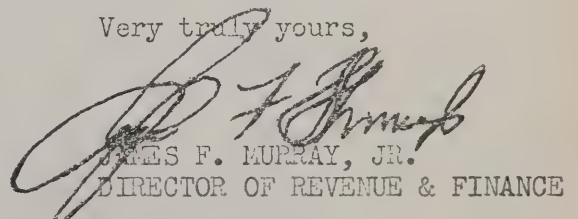 Very truly yours,
JAMES F. MURRAY, JR.
DIRECTOR OF REVENUE & FINANCE